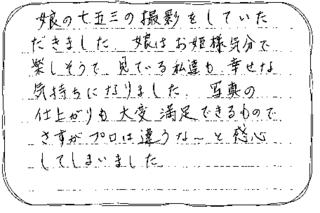 娘の七五三の撮影をしていた
だきました 娘はお姫様気分で
楽しそうで 見ている私達も 幸せな
気持ちになりました. 写真の
仕上がりも 大変 満足できるもので
さすが プロは違うな〜と 感心
してしまいました